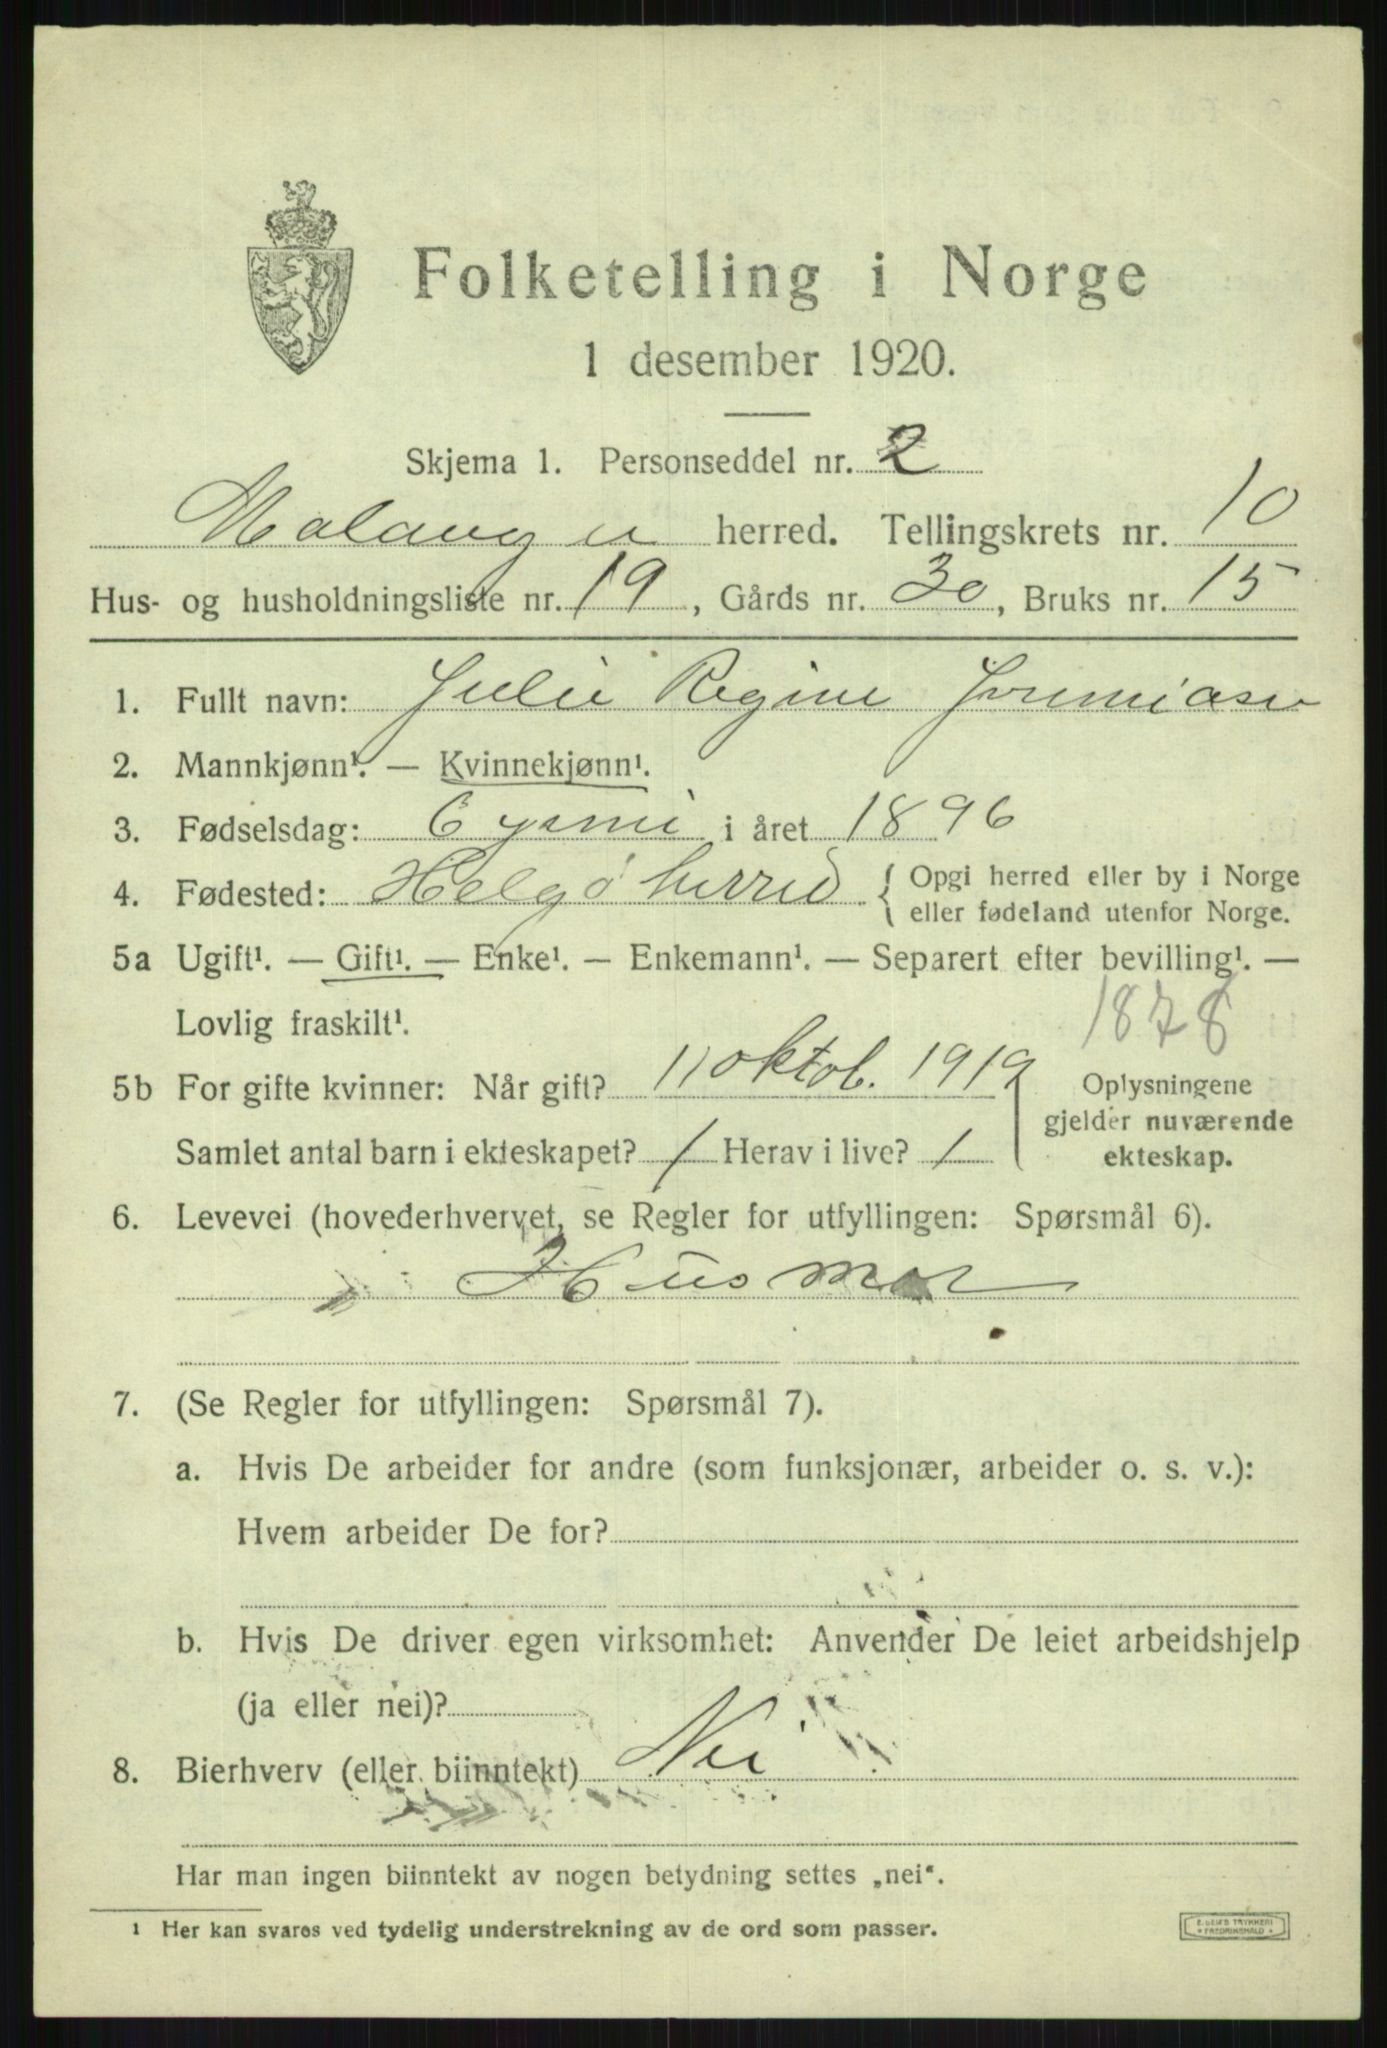 Folketelling i Norge
1 desember 1920.
Skjema 1. Personseddel nr. 2
Malangen herred. Tellingskrets nr. 10
Hus- og husholdningsliste nr. 19, Gårds nr. 30, Bruks nr. 15
1. Fullt navn: Julie Regine Jeremiasen
2. Mannkjønn¹. — Kvinnekjønn¹.
3. Fødselsdag: 6 juni i året 1896
4. Fødested: Helgø herred { Opgi herred eller by i Norge
eller fødeland utenfor Norge.
5a Ugift¹. — Gift¹. — Enke¹. — Enkemann¹. — Separert efter bevilling¹. —
Lovlig fraskilt¹.
1878
5b For gifte kvinner: Når gift? 11 oktob. 1919 Oplysningene
gjelder nuværende
Samlet antal barn i ekteskapet? 1 Herav i live? 1 ekteskap.
6. Levevei (hovederhvervet, se Regler for utfyllingen: Spørsmål 6).
Husmor
7. (Se Regler for utfyllingen: Spørsmål 7).
a. Hvis De arbeider for andre (som funksjonær, arbeider o. s. v.):
Hvem arbeider De for?
b. Hvis De driver egen virksomhet: Anvender De leiet arbeidshjelp
(ja eller nei)?
8. Bierhverv (eller biinntekt) Nei
Har man ingen biinntekt av nogen betydning settes „nei“.
¹ Her kan svares ved tydelig understrekning av de ord som passer.
TRYKKERI
FREDRIKSHALD